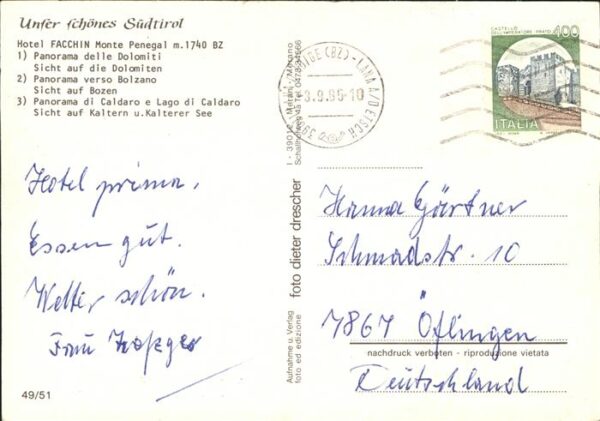 Unser schönes Südtirol
Hotel FACCHIN Monte Penegal m.1740 BZ
1) Panorama delle Dolomiti
Sicht auf die Dolomiten
2) Panorama verso Bolzano
Sicht auf Bozen
3) Panorama di Caldaro e Lago di Caldaro
Sicht auf Kaltern u.Kalterer See
Hotel prima,
Essen gut.
Wetter schön.
Frau
49/51
Aufnahme u. Verlag
foto ed edizione
foto dieter drescher
I - 39012 Meran - Merano
(BZ) - LANA A/D ETSCH
9.85-10
CASTELLO
DELL'IMPERATORE - PRATO
400
ITALIA
Hanna Gärtner
Schmadstr. 10
7867 Öflingen
nachdruck verboten - riproduzione vietata
Deutschland